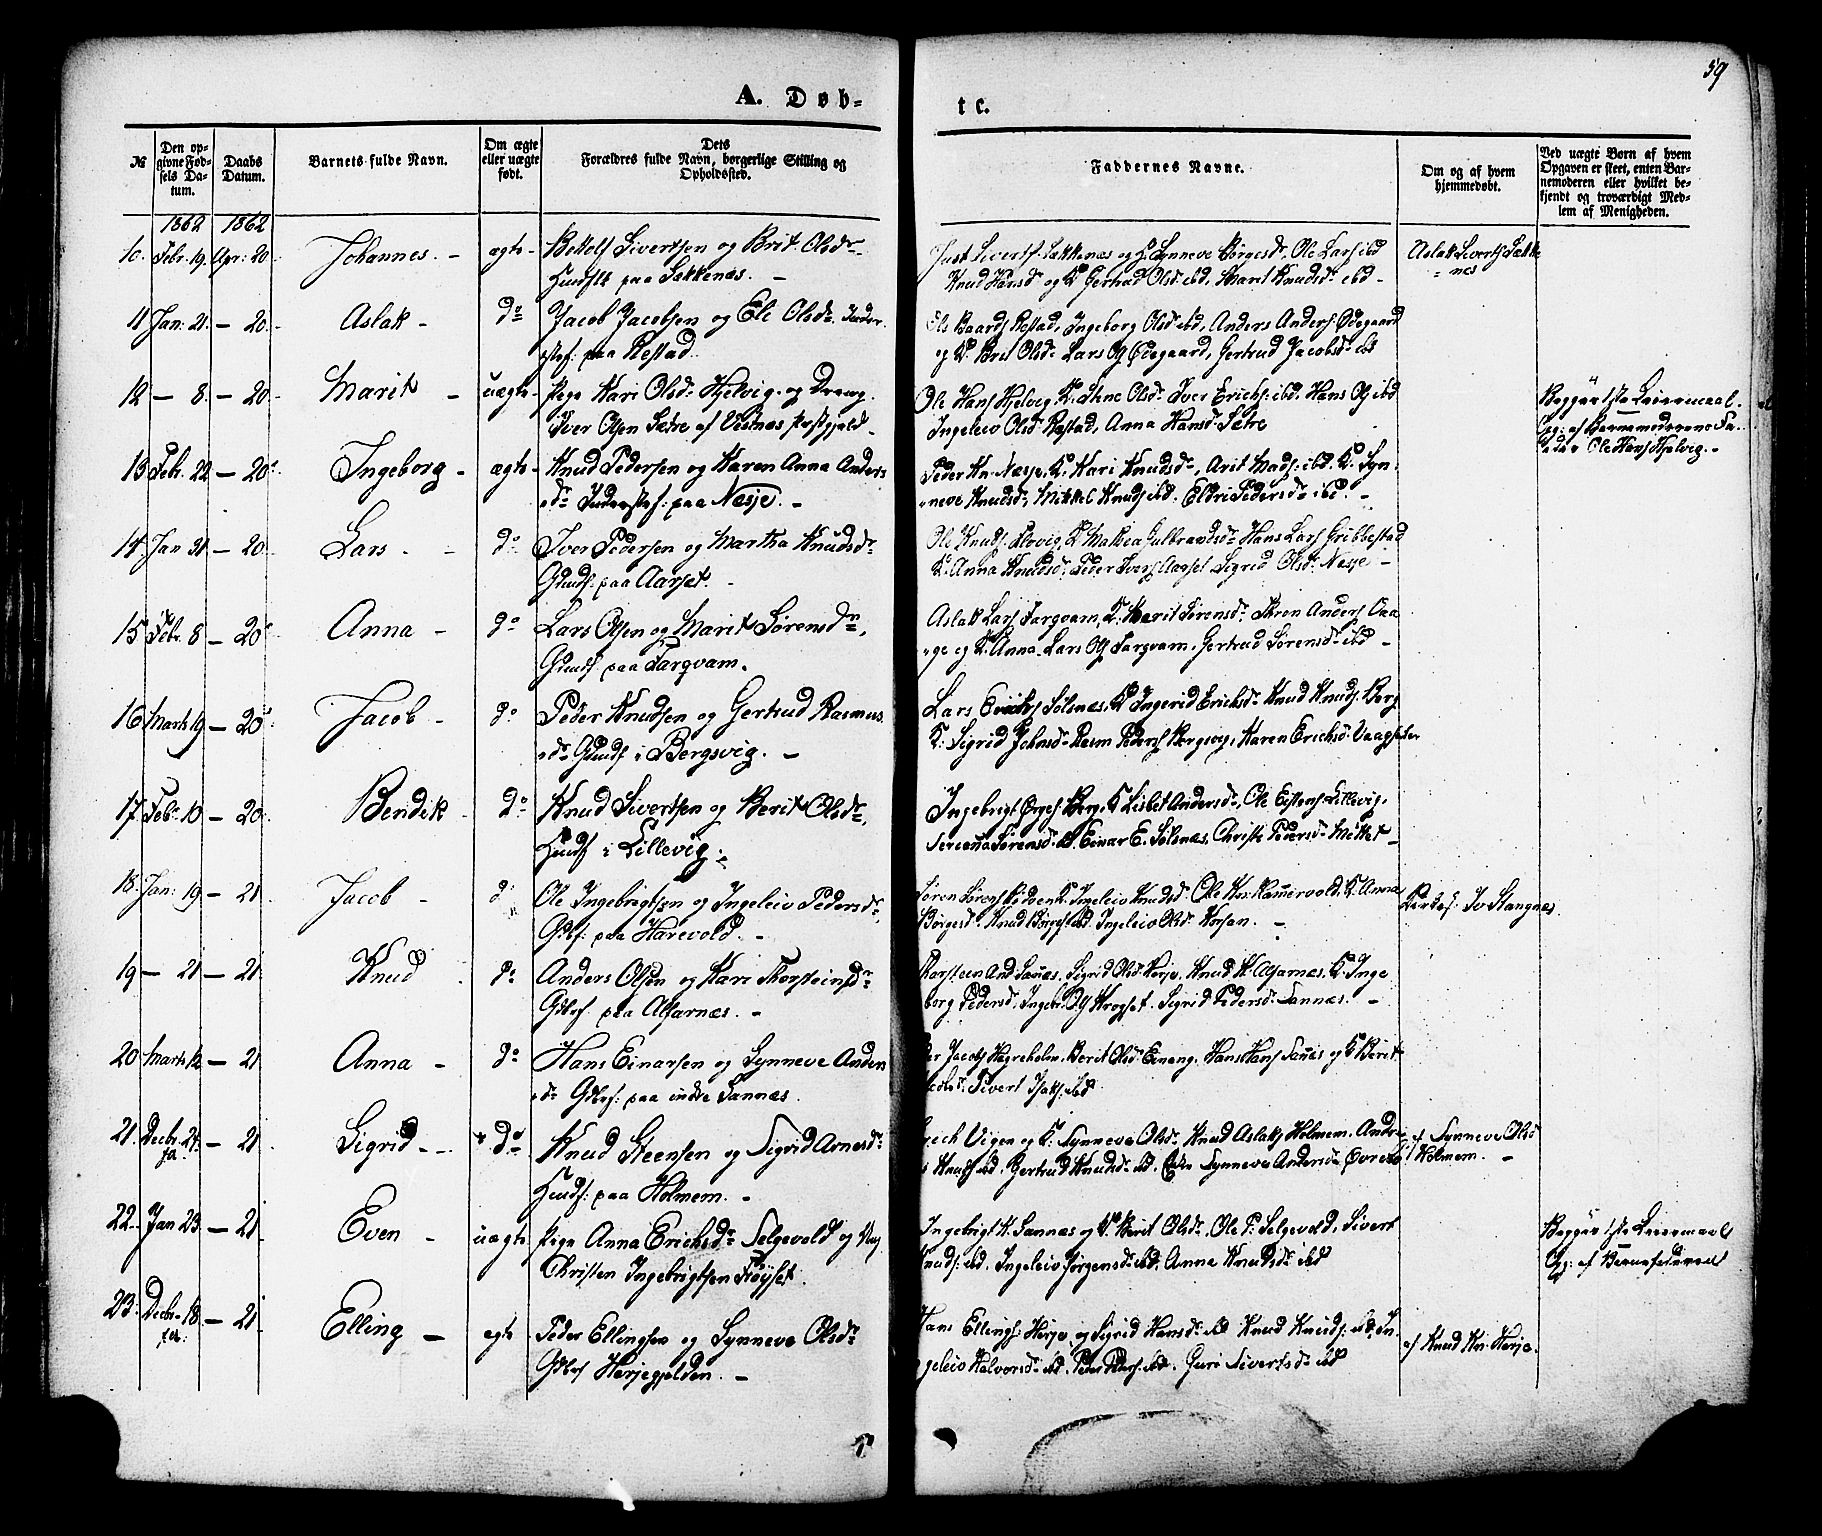 59
A. Døb-
te.
№
Den opgivne Fødsels Datum.
Daabs Datum.
Barnets fulde Navn.
Om ægte eller uægte født.
Dets Forældres fulde Navn, borgerlige Stilling og Opholdssted.
Faddernes Navne.
Om og af hvem hjemmedøbt.
Ved uægte Børn af hvem Opgaven er skeet, enten Barnemoderen eller hvilket bekjendt og troværdigt Medlem af Menigheden.
1862 1862
10. Febr. 19. Apr: 20. Johannes. - ægte - Sivertsen og Brit Olsdr
Huusflk paa Sækkenæs. -
Just Siverts. Sækkenæs og H. Synneve Børgesdr Ole Lars ibd
Knud Hansd og K. Gertrud Olsd. ibd, Marit Knudsdr ibd -
Aslak Siverts. Sække
= nes
11 Jan: 21. - 20. Aslak - do Jacob Jacobsen og Eli Olsdr Inder
stef: paa Restad.
Baards. Restad, Ingeborg Olsd ibd, Anders Anders. Ødegaard
og K. Brit Olsdr Lars Ols. Ødegaard, Gertrud Jacobsdr ibd
12 - 8. - 20. Marit - uægte - Pige Kari Olsdr Hjelvig og Dreng
Iver Olsen Sætre af Vestnæs Præstgjeld -
Ole Hans. Hjelvig, K. Ane Olsdr Iver Erichs. ibd. Hans Ols. ibd
Ingeleiv Olsd Restad, Anna Hansd. Sætre
Begges 1ste Leiermaal.
Opg: af Barnemoderens Fa-
der Ole Hans. Hjelvig. -
13 Febr. 22 - 20. Ingeborg - ægte - Knud Pedersen og Karen Anna Anders
dr Inderstef: paa Nesje. -
Peder Kn. Nesje, K. Kari Knudsdr, Arit Mads. ibd. K. Syn
neve Knudsdr, Mikkel Knuds. ibd. Eldri Pedersdr ibd. -
14 Jan 31 - 20. Lars - do Iver Pedersen og Martha Knudsdr
Gmds: paa Aarset. -
Ole Knuds. K. Mathea Gulbrandsdr Hans Lars. Gribbestad
K. Anna Knudsdr, Peder Ivers. Aarset Sigrid Olsdr Nesje -
15 Febr. 8 - 20. Anna - do Lars Olsen og Marit Sørensdr,
Gmds: paa Torgvam.
Aslak Lars. Torgvam, K. Marit Sørensdr Anders.
K. Anna Lars Ols. Torgvam, Gertrud Sørensdr ibd -
16 Marts 19 - 20. Jacob - do Peder Knudsen og Gertrud Rasmus
dr Gmds: i Bergsvig. -
Lars Erichs. Solsnæs, K. Ingerid Erichsdr Knud Knuds. Berg
K. Sigrid Johnsdr Rasm Peders. Bergsvig, Karen Erichsdr Vaagsæter
17 Febr. 10 - 20. Bendik do Knud Sivertsen og Berit Olsdr,
Huusf: i Lillevig. -
Ingebrigt Berg, K. Lisbet Andersdr, Ole Eistens. Lillevig,
Serena Sørensdr Einar E. Solsnæs, Christi Pedersdr Mittet -
18. Jan: 19 - 21 Jacob - do Ole Ingebrigtsen og Ingeleiv Pedersdr,
Gbf: paa Harevold. -
Søren Sørens. K. Ingeleiv Knudsdr Ole Kn. K. Anna
Børgesdr Knud Børges. ibd Ingeleiv Olsdr -
Iv. Stangnes.
19 - 21 - 21 Knud do Anders Olsen og Kari Thorsteinsdr
Gbf: paa Alfarnæs. -
Thorsteen And. Sannæs, Sigrid Olsd. Knud K. Alfarnæs. K. Inge
borg Pedersdr, Ingebr. Ols. Krogset. Sigrid Pedersdr Sannæs. -
20 Marts 12 - 21 Anna - do Hans Einarsen og Synneve Anders
dr Gbf: paa indre Sannæs.
Jacobs. Hagreholm, Berit Olsd. Einang, Hans Hans. Sannæs og K. Berit
Sivert Isaks. ibd
21. Decbr. 27. f.A. - 21. Sigrid -- do Knud Steensen og Sigrid Arnesdr
Huusf: paa Holmem. -
Vigen og K. Synneve Olsdr. Knud Aslaks. Holmem, Andre
Knuds. ibd. Gertrud Knudsdr ibd. Synneve Andersdr
af Synneve Olsd
Holmem. -
22. Jan 23. - 21 Even - uægte Pige Anna Erichsdr Selgevold og Ung
Christen Ingebrigtsen Frøyset.
Ingebrigt K. Sannæs og K. Berit Olsdr. Ole P. Selgevold, Sivert
Knuds. ibd. Ingeleiv Jørgensdr ibd, Anne Knudsdr ibd
Begges 1ste Leiermaal
Opg: af Barnefaderen
23. Decbr. 18. f.A. - 21. Elling - ægte Peder Ellingsen og Synneve Olsdr
Gbf Herjegjelden. -
Hans Ellings. Herje og Sigrid Hansdr ibd Knud Knuds. ibd, In
geleiv Halvorsdr ibd. Peder Peders. ibd. Guri Sivertsdr ibd
af Knud Kn. Herje.